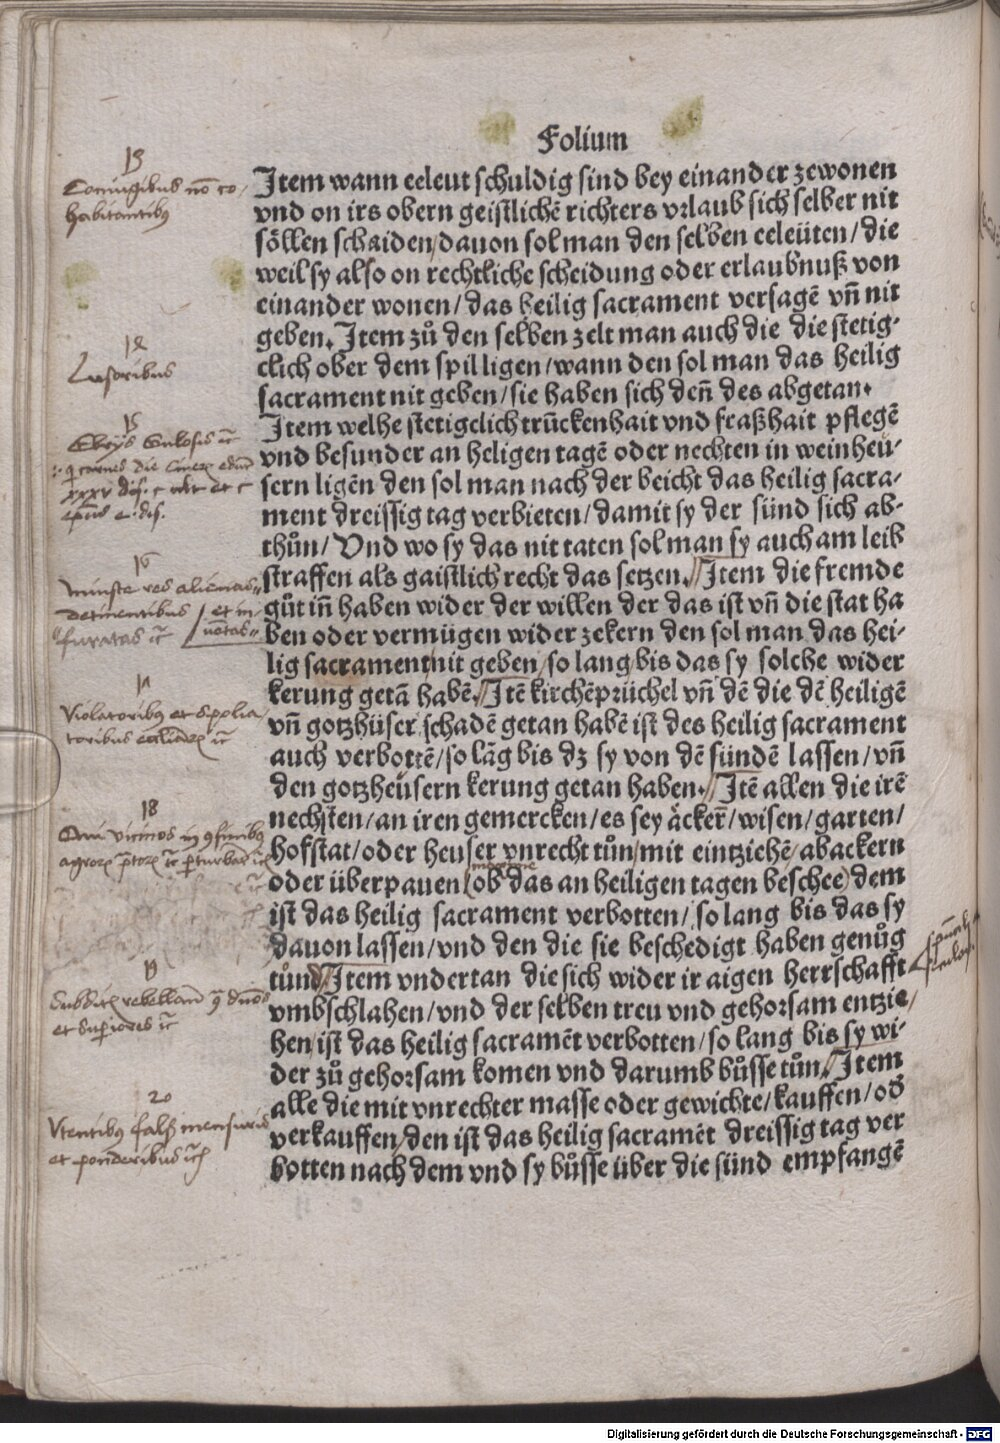 Folium
13
Coniugibus nō co-
habitantibꝰ
Item wann eeleut schuldig sind bey einander zewonen
vnd on irs obern geistlichē richters vrlaub sich selber nit
söllen schaiden/dauon sol man den selben eeleüten/die
weil sy also on rechtliche scheidung oder erlaubnuß von
einander wonen/das heilig sacrament versagē vñ nit
geben. Item zů den selben zelt man auch die die stetig-
clich ober dem spil ligen/wann den sol man das heilig
sacrament nit geben/sie haben sich deñ des abgetan.
14
Lusoribus
Item welhe stetigclich trūckenhait vnd fraßhait pflegē
vnd besunder an heligen tagē oder nechten in weinheü-
sern ligēn den sol man nach der beicht das heilig sacra-
ment dreissig tag verbieten/damit sy der sünd sich ab-
thůn/Vnd wo sy das nit taten sol man sy auch am leib
straffen als gaistlich recht das setzen. Item die fremde
gůt iñ haben wider der willen der das ist vñ die stat ha
ben oder vermügen wider zekern den sol man das hei-
lig sacrament nit geben/so lang bis das sy solche wider
kerung getā habē. Itē kirchēprüchel vñ dē die dē heiligē
vñ gotzhüser schadē getan habē ist des heilig sacrament
auch verbottē/so lāg bis dz sy von dē sündē lassen/vñ
den gotzheüsern kerung getan haben. Itē allen die irē
nechsten/an iren gemercken/es sey äckerr̄/wisen/garten/
hofstat/oder heuser vnrecht tůn/mit eintziehē/abackern
oder überpauen (ob das an heiligen tagen beschee) dem
ist das heilig sacrament verbotten/so lang bis das sy
dauon lassen/vnd den die sie beschedigt haben genůg
tůnd Item vndertan die sich wider ir aigen herrschafft
vmbschlahen/vnd der selben treu vnd gehorsam entzie/
hen/ist das heilig sacramēt verbotten/so lang bis sy wi-
der zů gehorsam komen vnd darumb bůsse tůn. Item
alle die mit vnrechter masse oder gewichte/kauffen/od̄
verkauffen/den ist das heilig sacramēt dreissig tag ver
botten nach dem vnd sy bůsse über die sünd empfangē
15
16
detinentibus
furatas
17
Violatoribꝰ et spolia
toribus
18
Qui vicinos in
19
et Superiores
20
Vtentibꝰ falß mensuris
et ponderibus
Digitalisierung gefördert durch die Deutsche Forschungsgemeinschaft - DFG